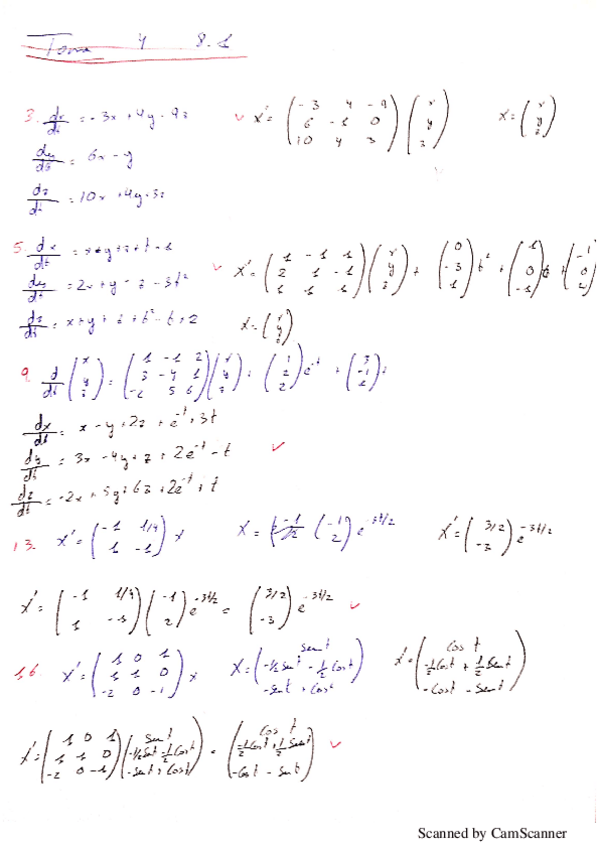 Tema 4 8.1
3. dx/dt = -3x + 4y - 9z ✓ X' = ( -3 4 -9 ; 6 -1 0 ; 10 4 3 ) ( x ; y ; z ) X = ( x ; y ; z )
dy/dt = 6x - y
dz/dt = 10x + 4y + 3z
5. dx/dt = x - y + z + t - 1
dy/dt = 2x + y - z - 3t² ✓ X' = ( 1 -1 1 ; 2 1 -1 ; 1 1 1 ) ( x ; y ; z ) + ( 0 ; -3 ; 1 ) t² + ( 1 ; 0 ; -1 ) t + ( -1 ; 0 ; 2 )
dz/dt = x + y + z + t² - t + 2 X = ( x ; y ; z )
9. d/dt ( x ; y ; z ) = ( 1 -1 2 ; 3 -4 1 ; -2 5 6 ) ( x ; y ; z ) + ( 1 ; 2 ; 2 ) e^-t + ( 3 ; -1 ; 1 ) t
dx/dt = x - y + 2z + e^-t + 3t
dy/dt = 3x - 4y + z + 2e^-t - t ✓
dz/dt = -2x + 5y + 6z + 2e^-t + t
13. X' = ( -1 1/4 ; 1 -1 ) X X = ( -1 ; 2 ) e^-3t/2 X' = ( 3/2 ; -3 ) e^-3t/2
X' = ( -1 1/4 ; 1 -1 ) ( -1 ; 2 ) e^-3t/2 = ( 3/2 ; -3 ) e^-3t/2 ✓
16. X' = ( 1 0 1 ; 1 1 0 ; -2 0 -1 ) X X = ( sent ; -1/2 sent - 1/2 cost ; -sent + cost ) X' = ( cos t ; -1/2 cost + 1/2 sent ; -cost - sent )
X' = ( 1 0 1 ; 1 1 0 ; -2 0 -1 ) ( sent ; -1/2 sent - 1/2 cost ; -sent + cost ) = ( cos t ; -1/2 cost + 1/2 sent ; -cost - sent ) ✓
Scanned by CamScanner